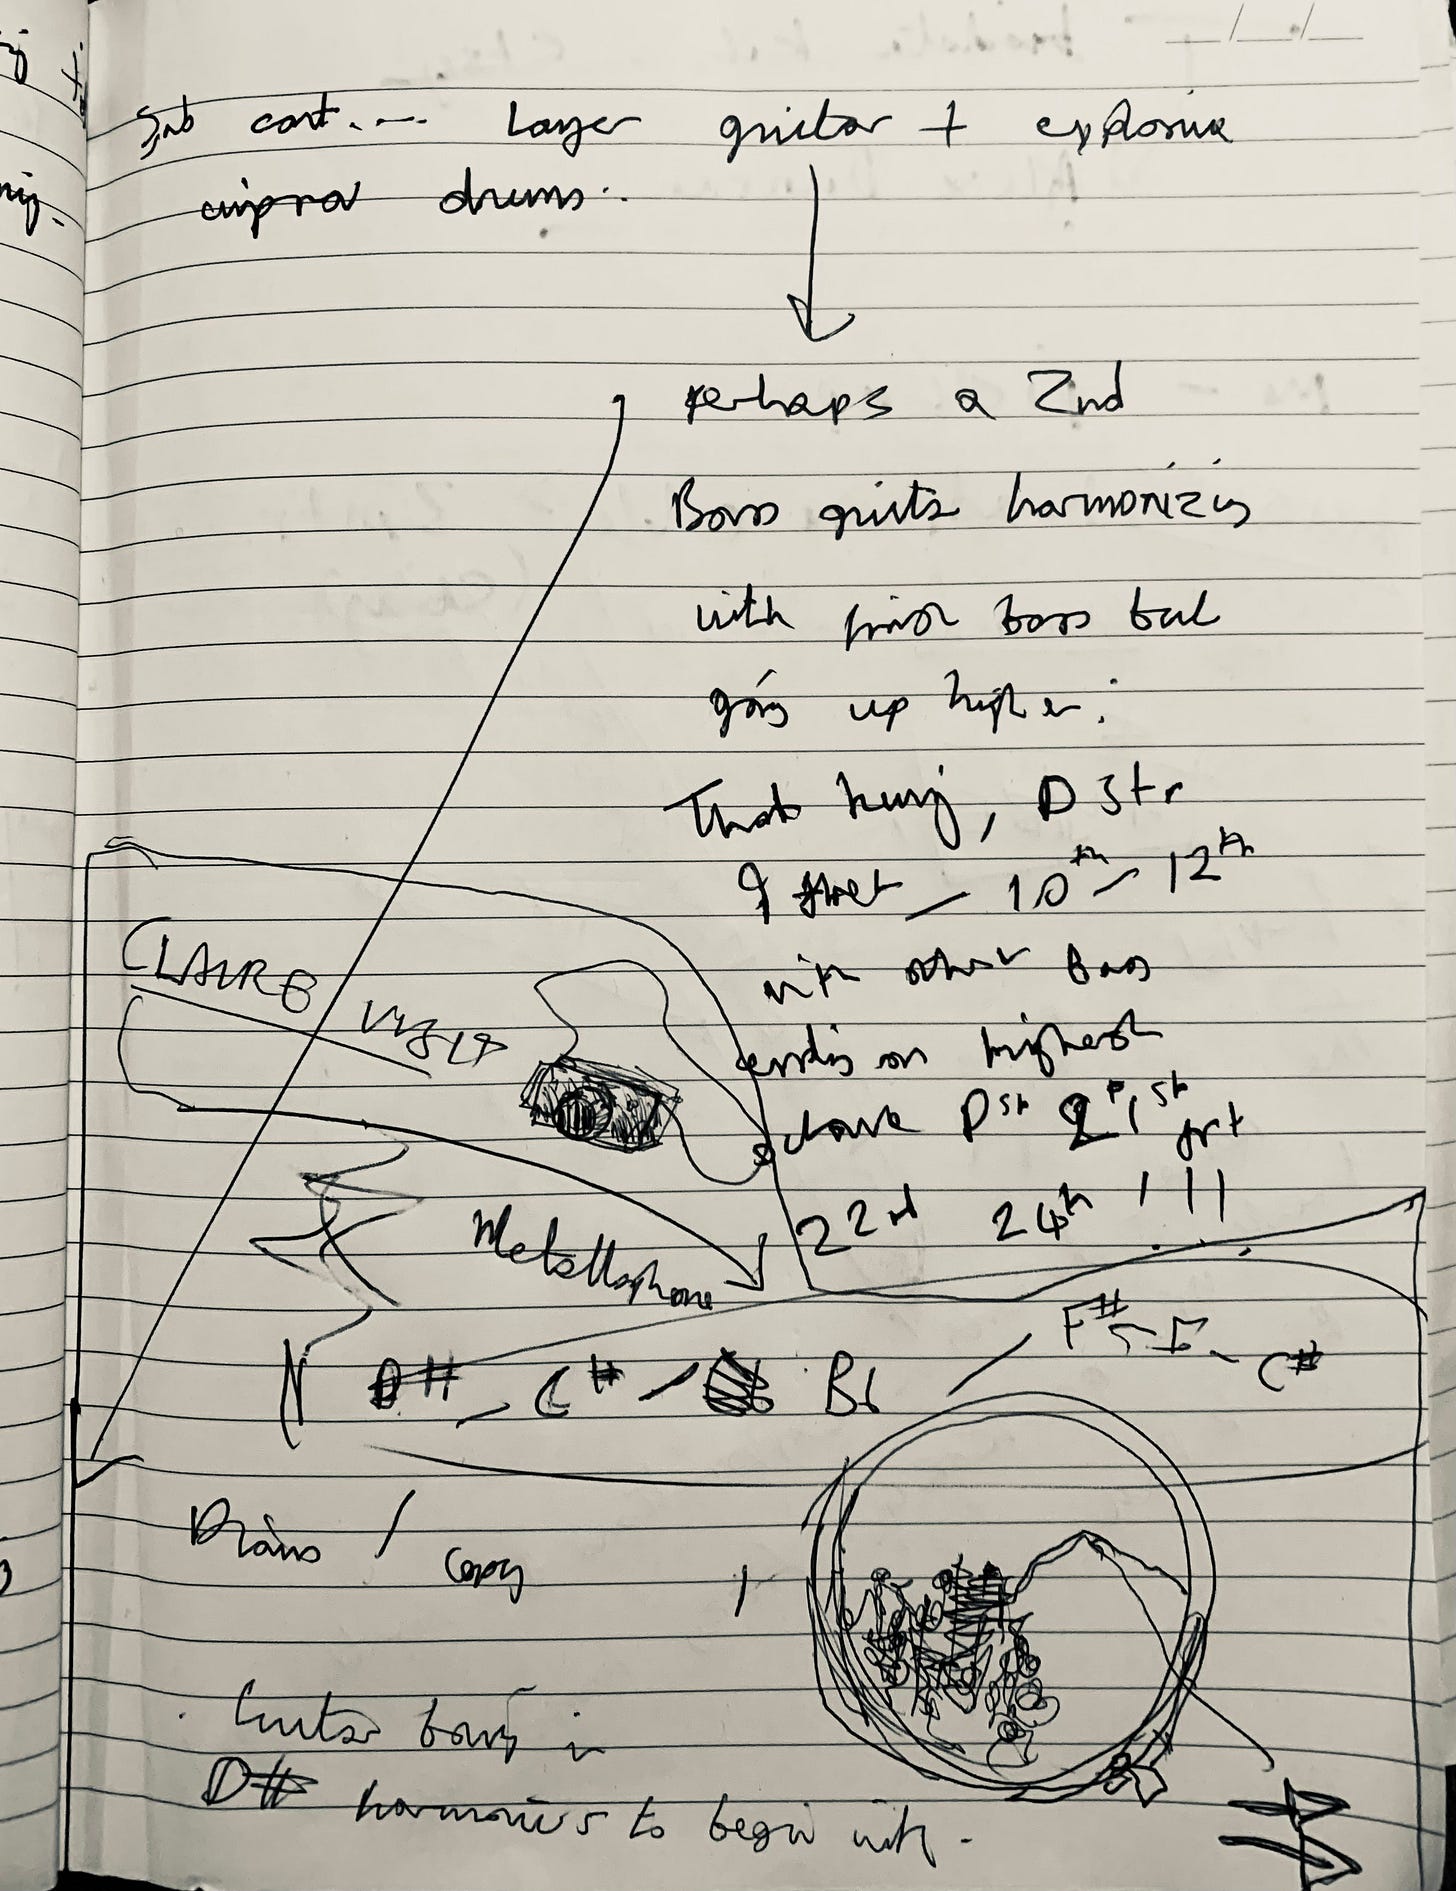 cont.... Layer guitar + explosive
improv drums.
perhaps a 2nd
Bass guitar harmonizing
with prior bass but
going up higher.
That being, D Str
9 fret – 10th – 12th
with other Bass
ending on highest
octave D st 21st frt
22nd 24th !!!
Metallophone
D# – C# / Bb / F# – C#
Piano / copy
Guitar bowing in
D# harmonics to begin with.